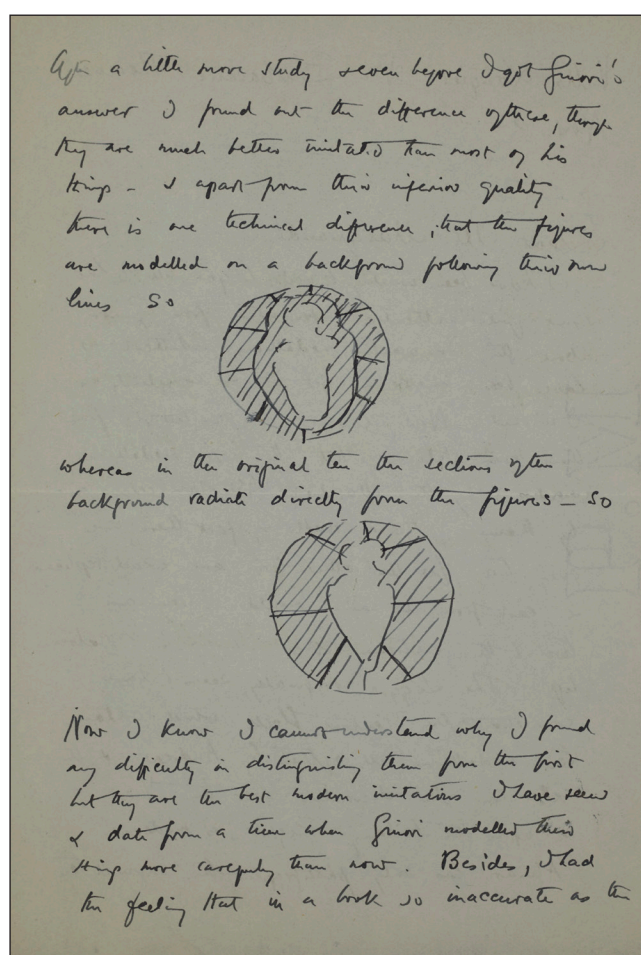 After a little more study & even before I got Ginori's
answer I found out the difference of these, though
they are much better imitated than most of his
things – & apart from their inferior quality
there is one technical difference, that the figures
are modelled on a background following their own
lines so
whereas in the original ten the sections of the
background radiate directly from the figures – so
Now I know I cannot understand why I found
any difficulty in distinguishing them from the first
but they are the best modern imitations I have seen
& date from a time when Ginori modelled their
things more carefully than now. Besides, I had
the feeling that in a book so inaccurate as the